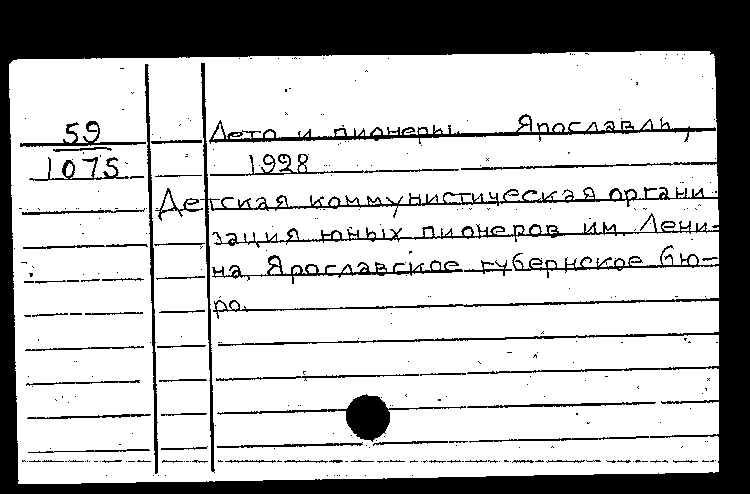 59
1075
Лето и пионеры. Ярославль,
1928
Детская коммунистическая органи
зация юных пионеров им. Лени-
на. Ярославское губернское бю-
ро.